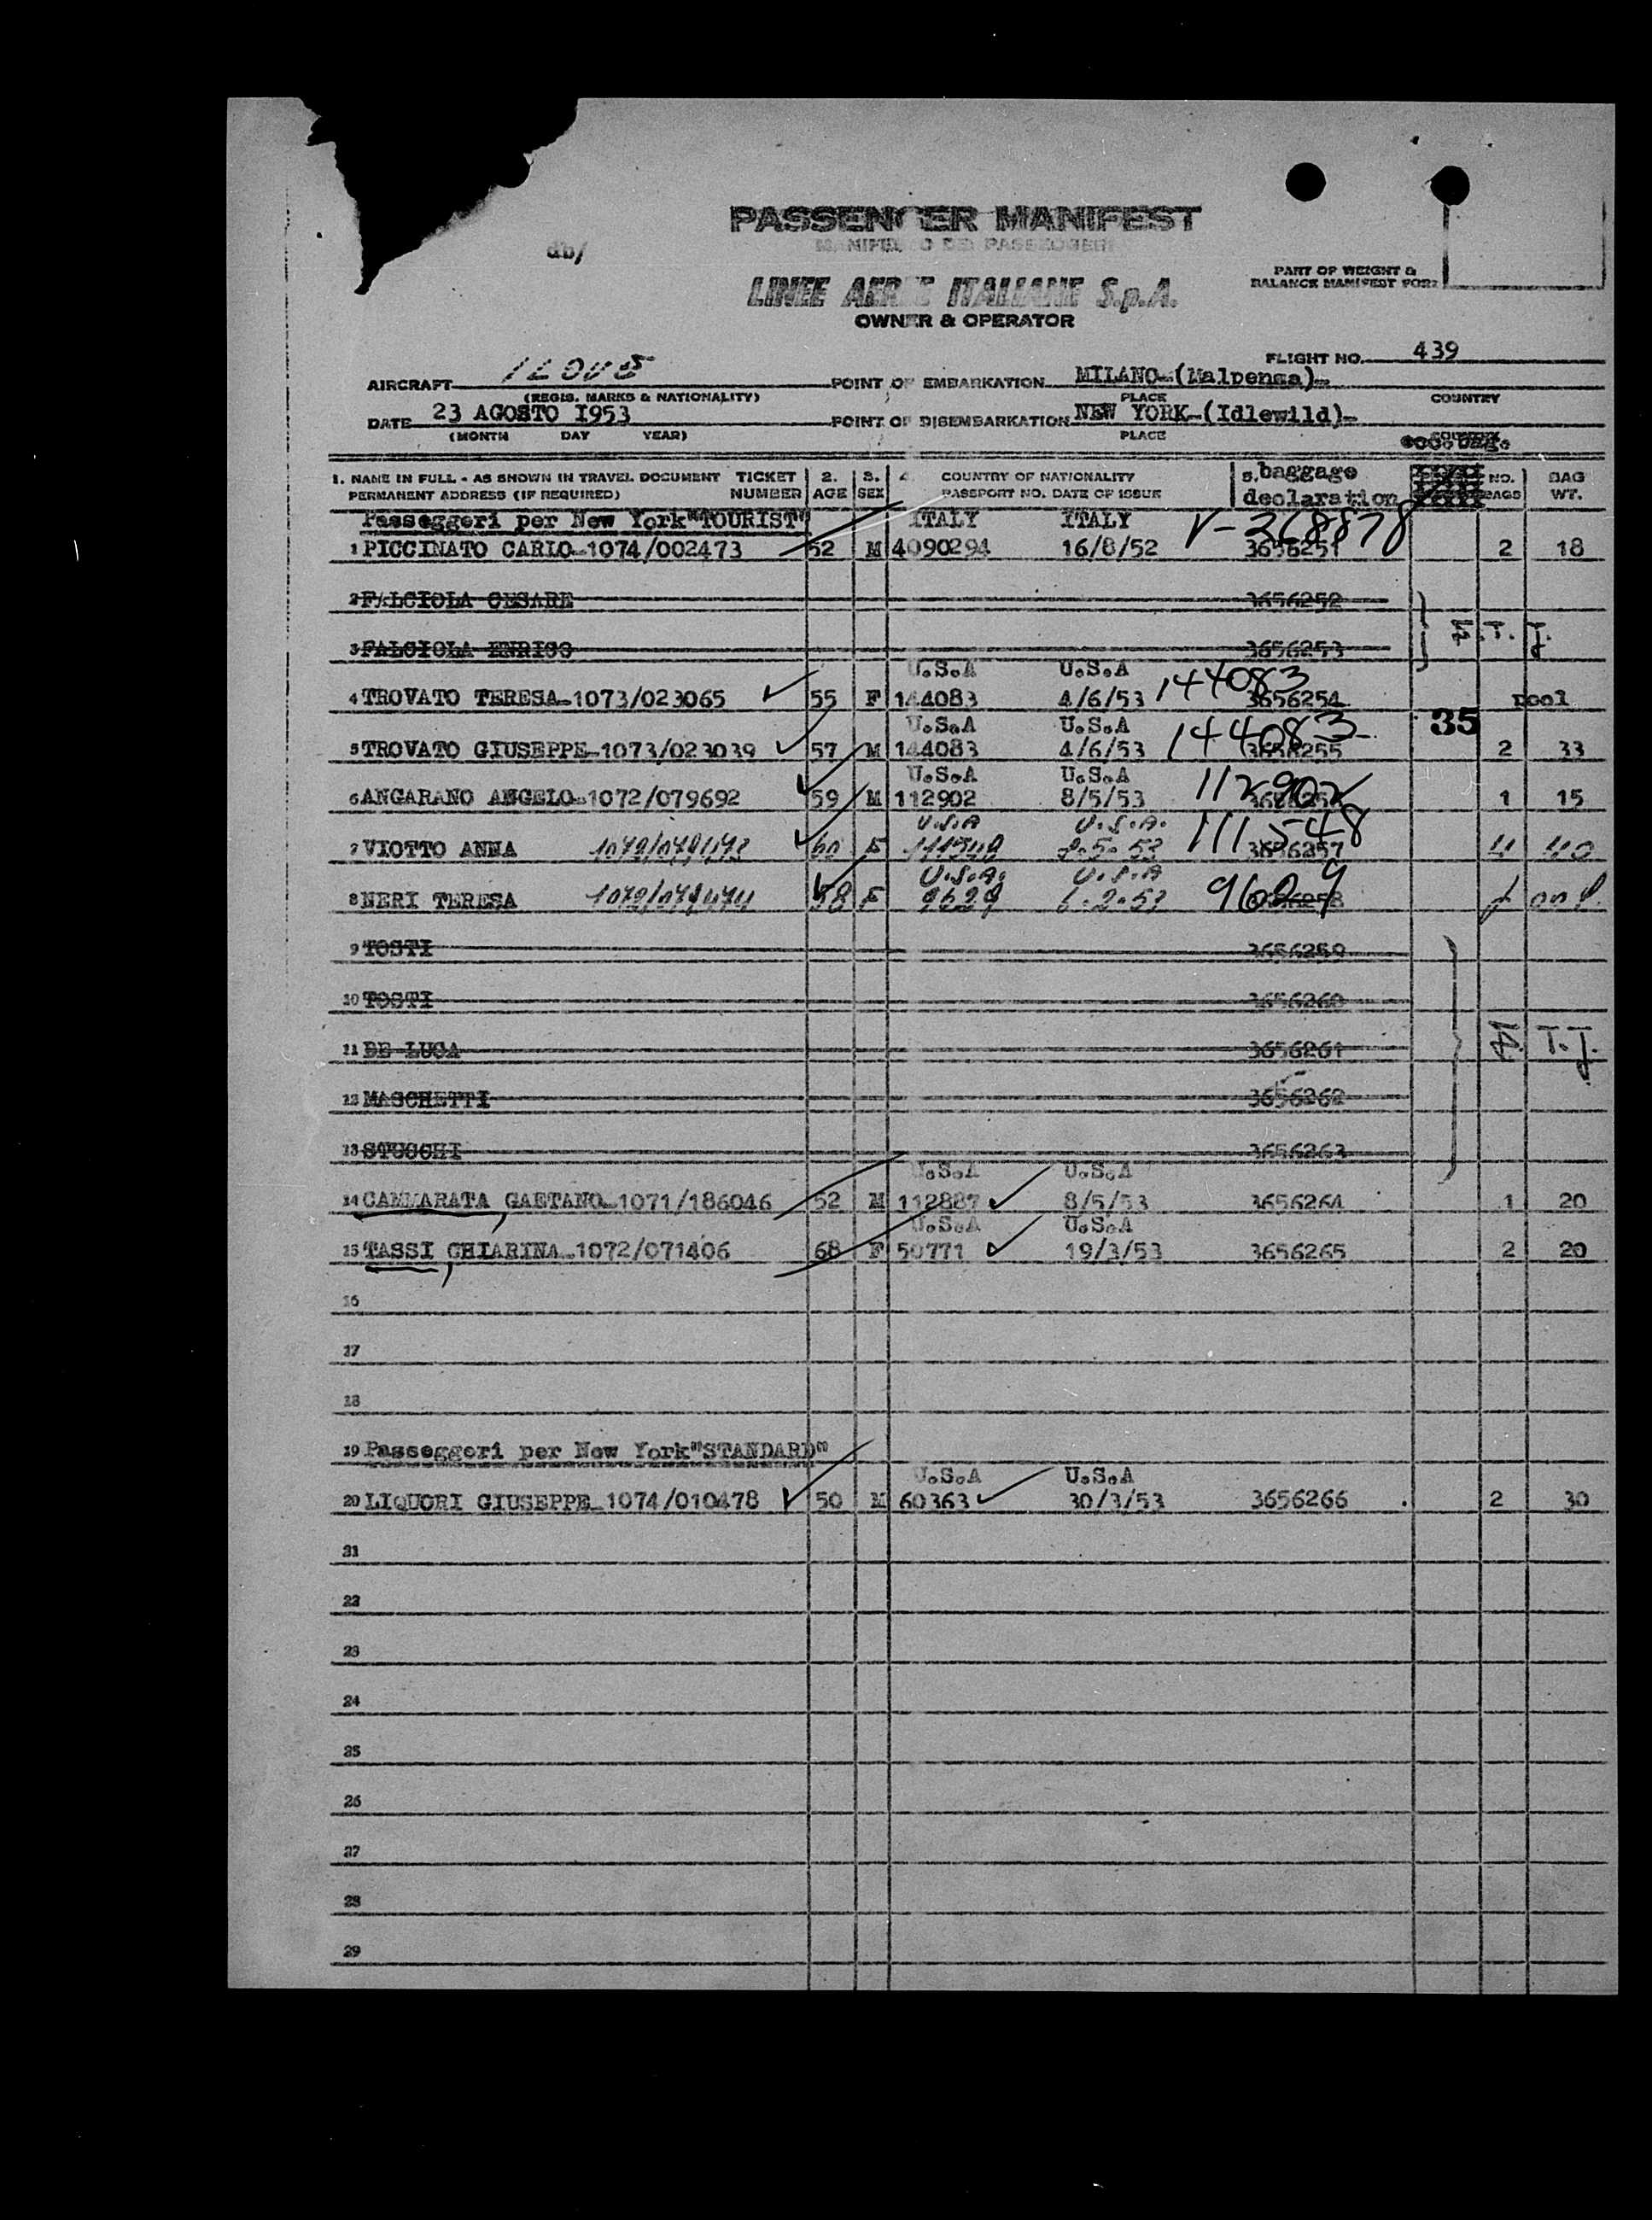 PASSENGER MANIFEST
db/
LINEE AEREE ITALIANE S.p.A.
OWNER & OPERATOR
PART OF WEIGHT &
BALANCE MANIFEST FOR:
FLIGHT NO. 439
AIRCRAFT POINT OF EMBARKATION MILANO-(Malpensa)-
(REGIS. MARKS & NATIONALITY) PLACE COUNTRY
DATE 23 AGOSTO I953 POINT OF DISEMBARKATION NEW YORK-(Idlewild)-
(MONTH DAY YEAR) PLACE
1. NAME IN FULL - AS SHOWN IN TRAVEL DOCUMENT TICKET 2. 3. 4. COUNTRY OF NATIONALITY 5. baggage NO. BAG
PERMANENT ADDRESS (IF REQUIRED) NUMBER AGE SEX PASSPORT NO. DATE OF ISSUE declaration BAGS WT.
Passeggeri per New York"TOURIST" ITALY ITALY V-368878
1 PICCINATO CARLO-1074/002473 52 M 4090294 16/8/52 3656251 2 18
2 FALCIOLA CESARE 3656252
3 FALCIOLA ENRICO 3656253
U.S.A U.S.A 144083
4 TROVATO TERESA-1073/023065 55 F 144083 4/6/53 3656254 pool
U.S.A U.S.A 144083 35
5 TROVATO GIUSEPPE-1073/023039 57 M 144083 4/6/53 3656255 2 33
U.S.A U.S.A 112902
6 ANGARANO ANGELO-1072/079692 59 M 112902 8/5/53 1 15
U.S.A U.S.A. 111548
7 VIOTTO ANNA 60 F 111548 8.5.53 3656257 4 40
U.S.A. U.S.A
8 NERI TERESA 58 F 9629 6.2.53 9629
9 TOSTI 3656259
10 TOSTI 3656260
T.J.
11 DE LUCA 3656261
12 MASCHETTI 3656262
13 STUCCHI 3656263
U.S.A U.S.A
14 CAMMARATA, GAETANO-1071/186046 52 M 112887 8/5/53 3656264 1 20
U.S.A U.S.A
15 TASSI, CHIARINA-1072/071406 68 F 50771 19/3/53 3656265 2 20
16
17
18
19 Passeggeri per New York"STANDARD"
U.S.A U.S.A
20 LIQUORI GIUSEPPE-1074/010478 50 M 60363 30/3/53 3656266 2 30
21
22
23
24
25
26
27
28
29